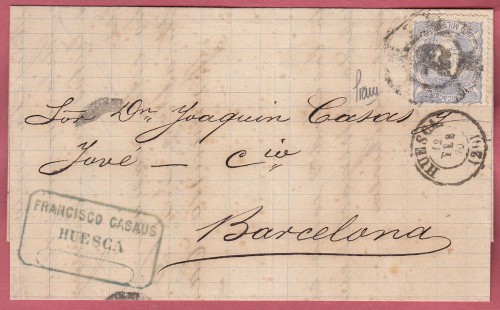 Sõr Dn Joaquin Casas y
Jove — Cia
Barcelona
FRANCISCO CASAUS
HUESCA
HUESCA
12
FEB
(12)